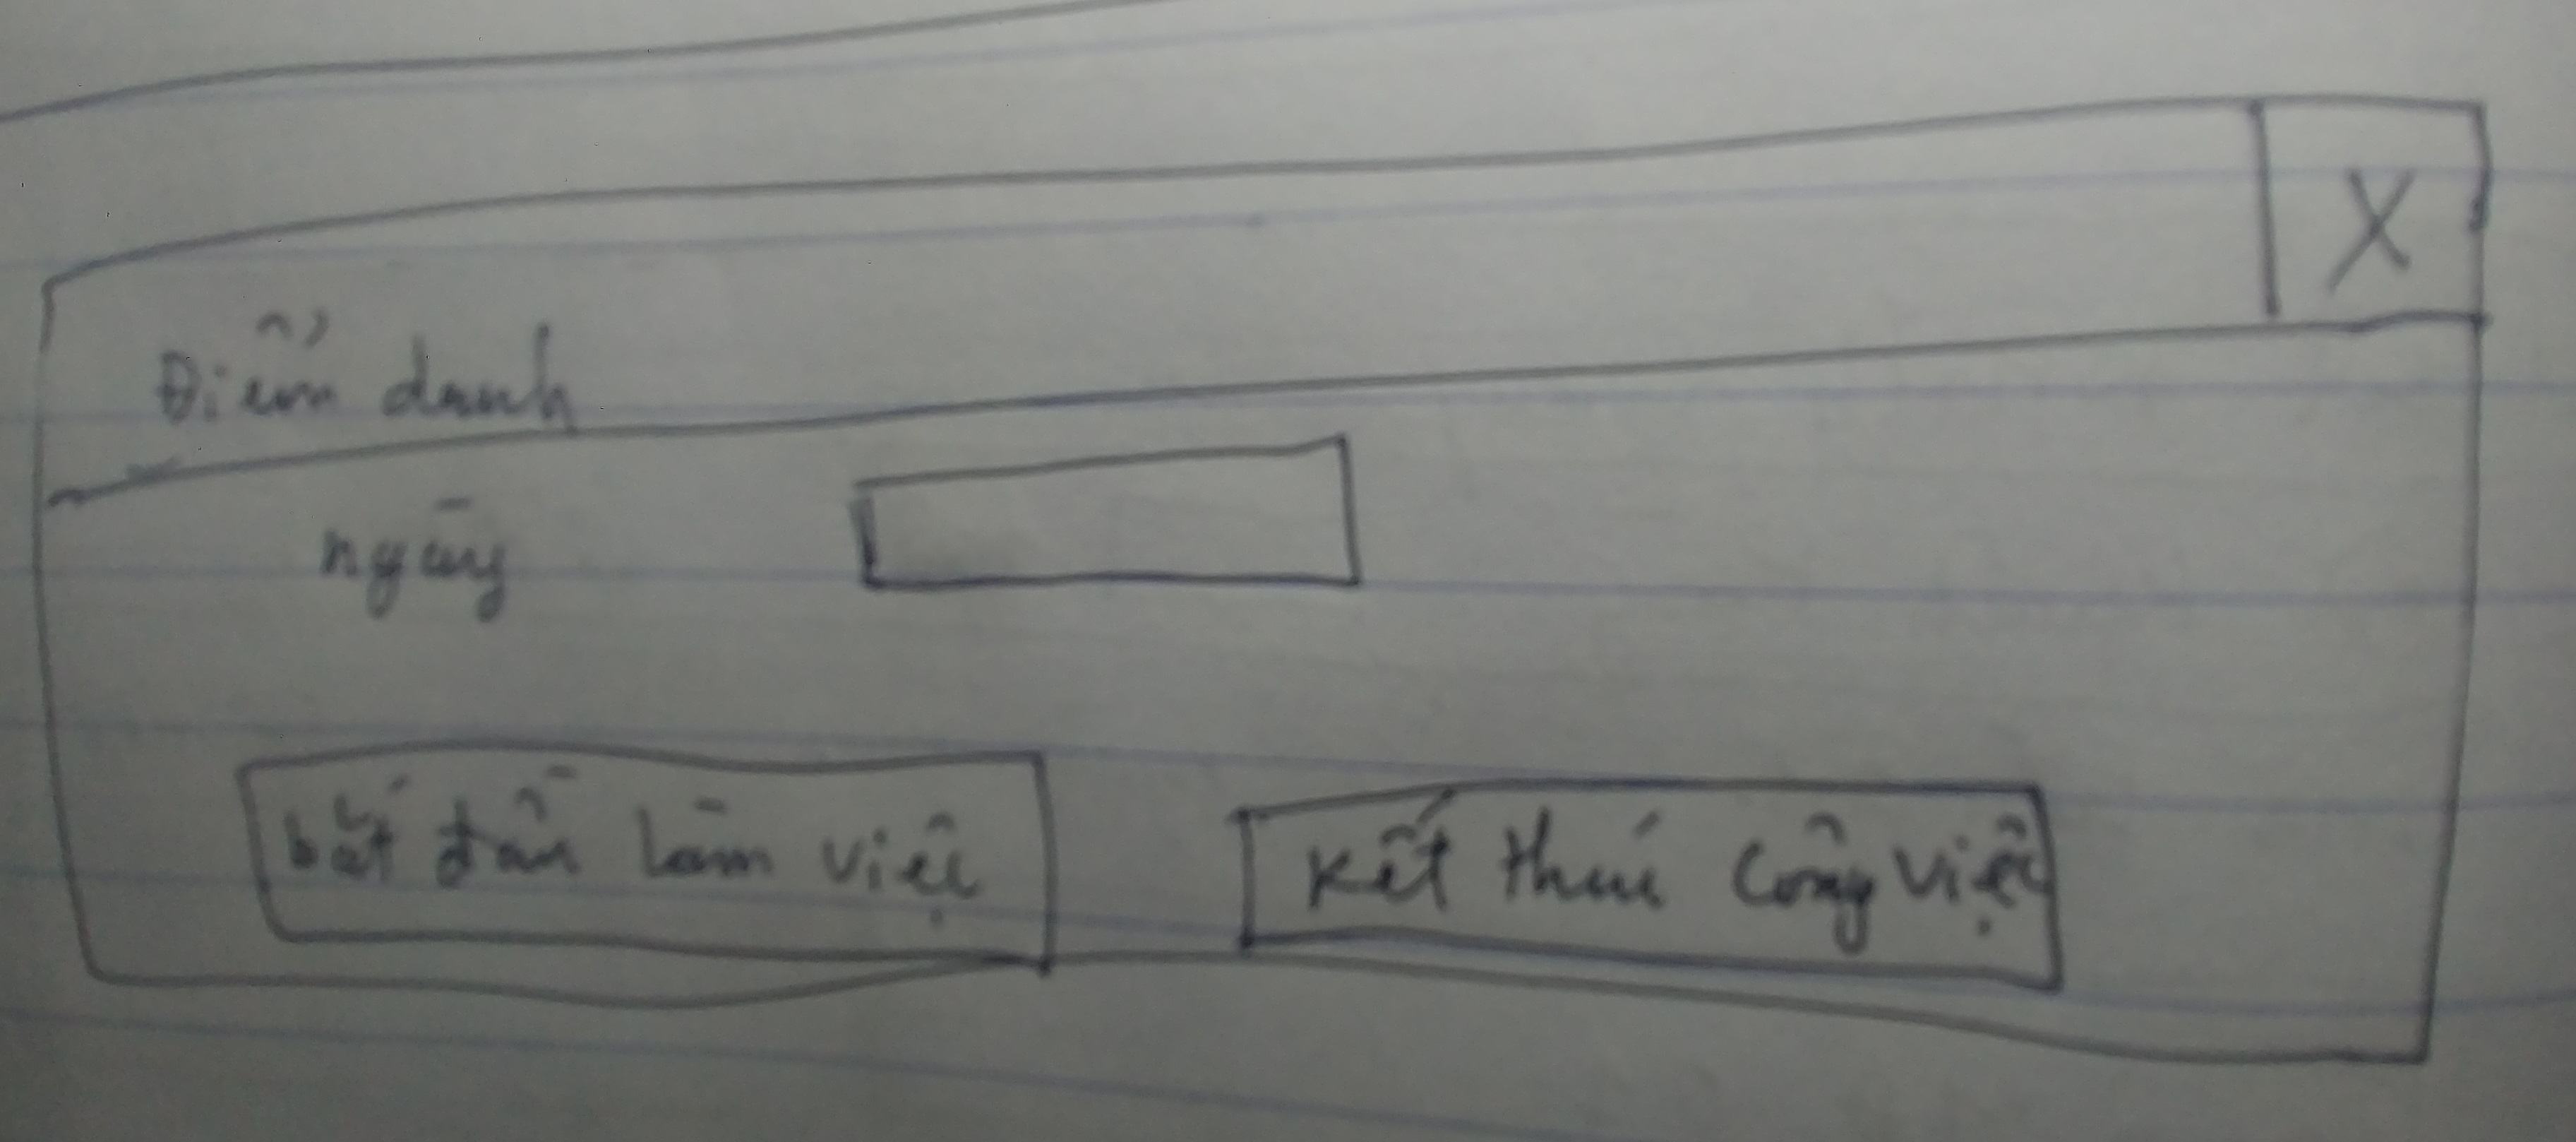 X
Điểm danh
ngày
bắt đầu làm việc
Kết thúc công việc